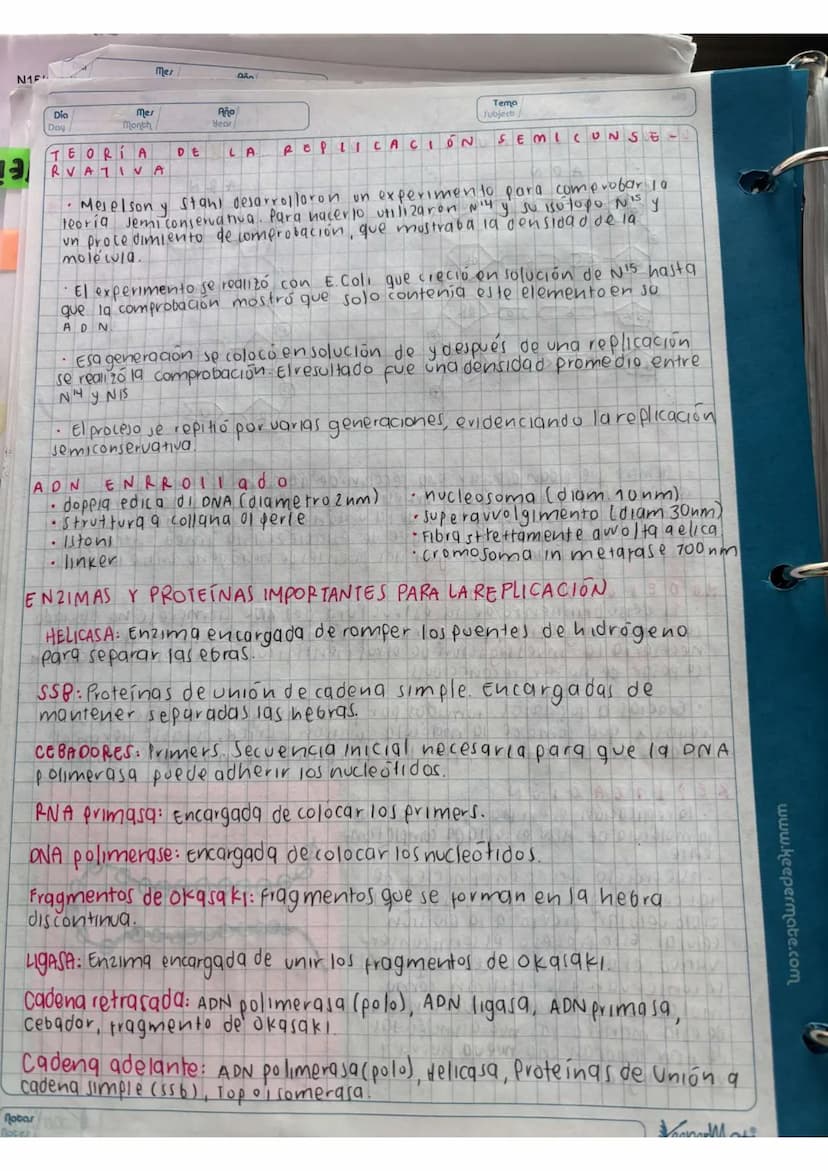 N15
Mes
Año
Día
Day
Mes
Month
Año
Year
Tema
Subject
TEORÍA DE LA REPLICACIÓN SEMICONSE-
RVATIVA
· Meselson y Stahl desarrollaron un experimento para comprobar la
teoría semiconservativa. Para hacerlo utilizaron N14 y su isótopo N15 y
un procedimiento de comprobación, que mostraba la densidad de la
molécula.
· El experimento se realizó con E.Coli que creció en solución de N15 hasta
que la comprobación mostró que solo contenía este elemento en su
ADN.
· Esa generación se colocó en solución de y después de una replicación
se realizó la comprobación. El resultado fue una densidad promedio entre
N14 y N15
· El proceso se repitió por varias generaciones, evidenciando la replicación
semiconservativa.
ADN ENRROllado
· doppia edica di DNA (diametro 2nm)
· struttura a collana di perle
· istoni
· linker
· nucleosoma (diam 10nm)
· superavvolgimento (diam 30nm)
· Fibra strettamente avvolta aelica
· cromosoma in metafase 700nm
ENZIMAS Y PROTEÍNAS IMPORTANTES PARA LA REPLICACIÓN
HELICASA: Enzima encargada de romper los puentes de hidrógeno
para separar las ebras.
SSB: Proteínas de unión de cadena simple. Encargadas de
mantener separadas las hebras.
CEBADORES: Primers. Secuencia inicial necesaria para que la DNA
polimerasa puede adherir los nucleótidos.
RNA primasa: Encargada de colocar los primers.
DNA polimerase: encargada de colocar los nucleótidos.
Fragmentos de okasaki: fragmentos que se forman en la hebra
discontinua.
LIGASA: Enzima encargada de unir los fragmentos de okasaki.
Cadena retrasada: ADN polimerasa (polo), ADN ligasa, ADN primasa,
cebador, fragmento de okasaki.
Cadena adelante: ADN polimerasa (polo), Helicasa, Proteínas de Unión a
cadena simple (ssb), Topoisomerasa.
Notas
Notes
KeeperMate
www.keepermate.com